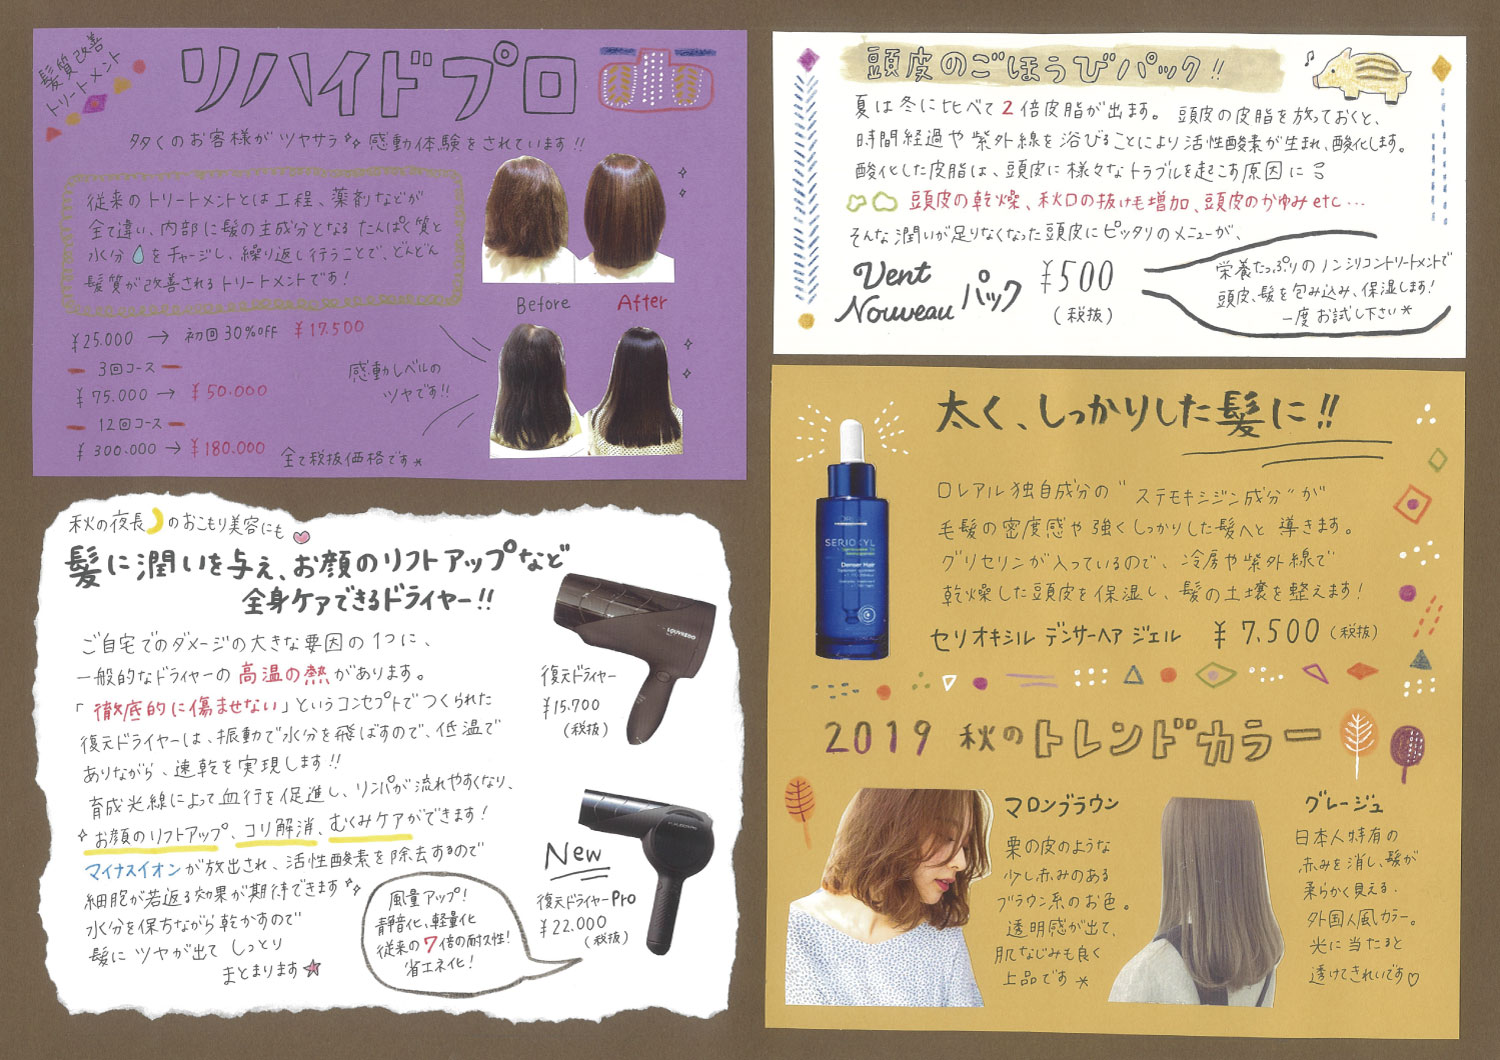 髪質改善
トリートメント
リハイドプロ
多くのお客様がツヤサラ感動体験をされています!!
従来のトリートメントとは工程、薬剤などが
全て違い、内部に髪の主成分となるたんぱく質と
水分をチャージし、繰り返し行うことで、どんどん
髪質が改善されるトリートメントです!
¥25.000 → 初回30%OFF ¥17.500
3回コース
¥75.000 → ¥50.000
12回コース
¥300.000 → ¥180.000
全て税抜価格です*
Before After
感動レベルの
ツヤです!!
秋の夜長のおこもり美容にも
髪に潤いを与え、お顔のリフトアップなど
全身ケアできるドライヤー!!
ご自宅でのダメージの大きな要因の1つに、
一般的なドライヤーの高温の熱があります。
「徹底的に傷ませない」というコンセプトでつくられた
復元ドライヤーは、振動で水分を飛ばすので、低温で
ありながら、速乾を実現します!!
育成光線によって血行を促進し、リンパが流れやすくなり、
お顔のリフトアップ、コリ解消、むくみケアができます!
マイナスイオンが放出され、活性酸素を除去するので
細胞が若返る効果が期待できます
水分を保ちながら乾かすので
髪にツヤが出てしっとり
まとまります☆
LOUVREDO
復元ドライヤー
¥15.700
(税抜)
New
復元ドライヤーPro
¥22.000
(税抜)
風量アップ!
静音化、軽量化
従来の7倍の耐久性!
省エネ化!
頭皮のごほうびパック!!
夏は冬に比べて2倍皮脂が出ます。頭皮の皮脂を放っておくと、
時間経過や紫外線を浴びることにより活性酸素が生まれ、酸化します。
酸化した皮脂は、頭皮に様々なトラブルを起こす原因に
頭皮の乾燥、秋口の抜け毛増加、頭皮のかゆみetc…
そんな潤いが足りなくなった頭皮にピッタリのメニューが、
Vent
Nouveau パック ¥500
(税抜)
栄養たっぷりのノンシリコントリートメントで
頭皮、髪を包み込み、保湿します!
一度お試し下さい*
太く、しっかりした髪に!!
ロレアル独自成分の"ステモキシジン成分"が
毛髪の密度感や強くしっかりした髪へと導きます。
グリセリンが入っているので、冷房や紫外線で
乾燥した頭皮を保湿し、髪の土壌を整えます!
セリオキシル デンサーヘア ジェル ¥7.500(税抜)
SERIOXYL
Denser Hair
2019 秋のトレンドカラー
マロンブラウン
栗の皮のような
少し赤みのある
ブラウン系のお色。
透明感が出て、
肌なじみも良く
上品です*
グレージュ
日本人特有の
赤みを消し、髪が
柔らかく見える
外国人風カラー。
光に当たると
透けてきれいです♡